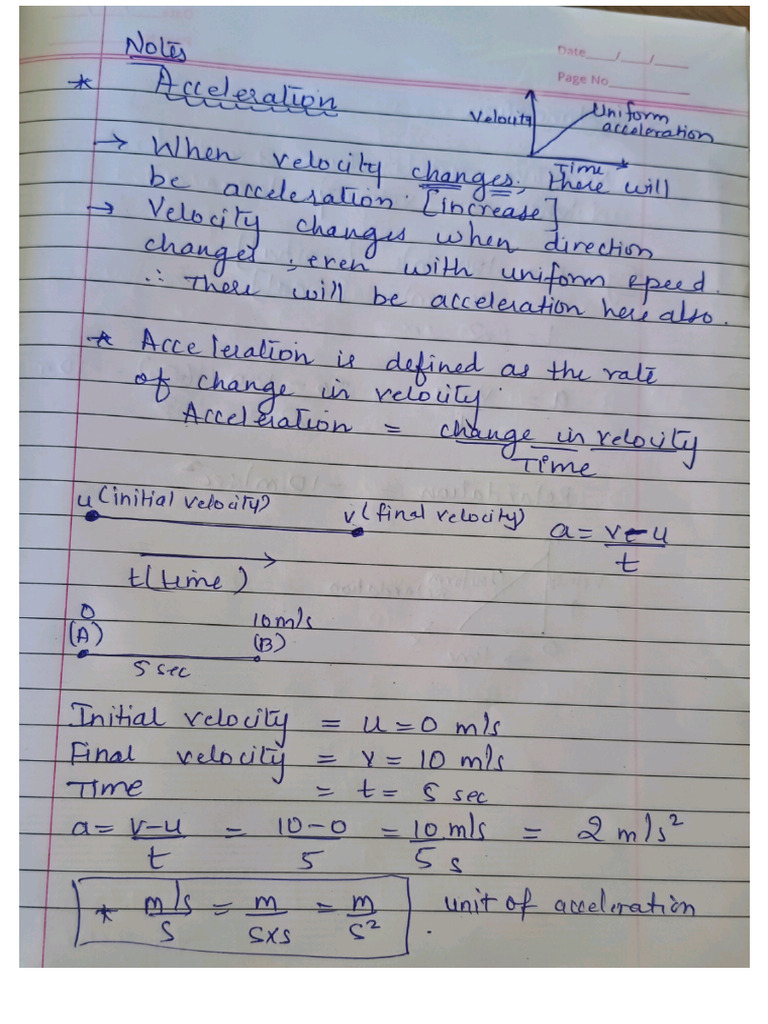 Notes
Date___/___/___
Page No.
* Acceleration
Velocity
Uniform
acceleration
Time
→ When velocity changes, there will
be acceleration. [increase]
→ Velocity changes when direction
changes, even with uniform speed.
∴ There will be acceleration here also.
* Acceleration is defined as the rate
of change in velocity.
Acceleration = change in velocity
Time
u (initial velocity)
v (final velocity)
a = v-u
t
t(time)
0
10m/s
(A)
(B)
5 sec
Initial velocity = u = 0 m/s
Final velocity = v = 10 m/s
Time = t = 5 sec
a = v-u = 10-0 = 10 m/s = 2 m/s²
t 5 5 s
* m/s = m = m unit of acceleration.
s s×s s²